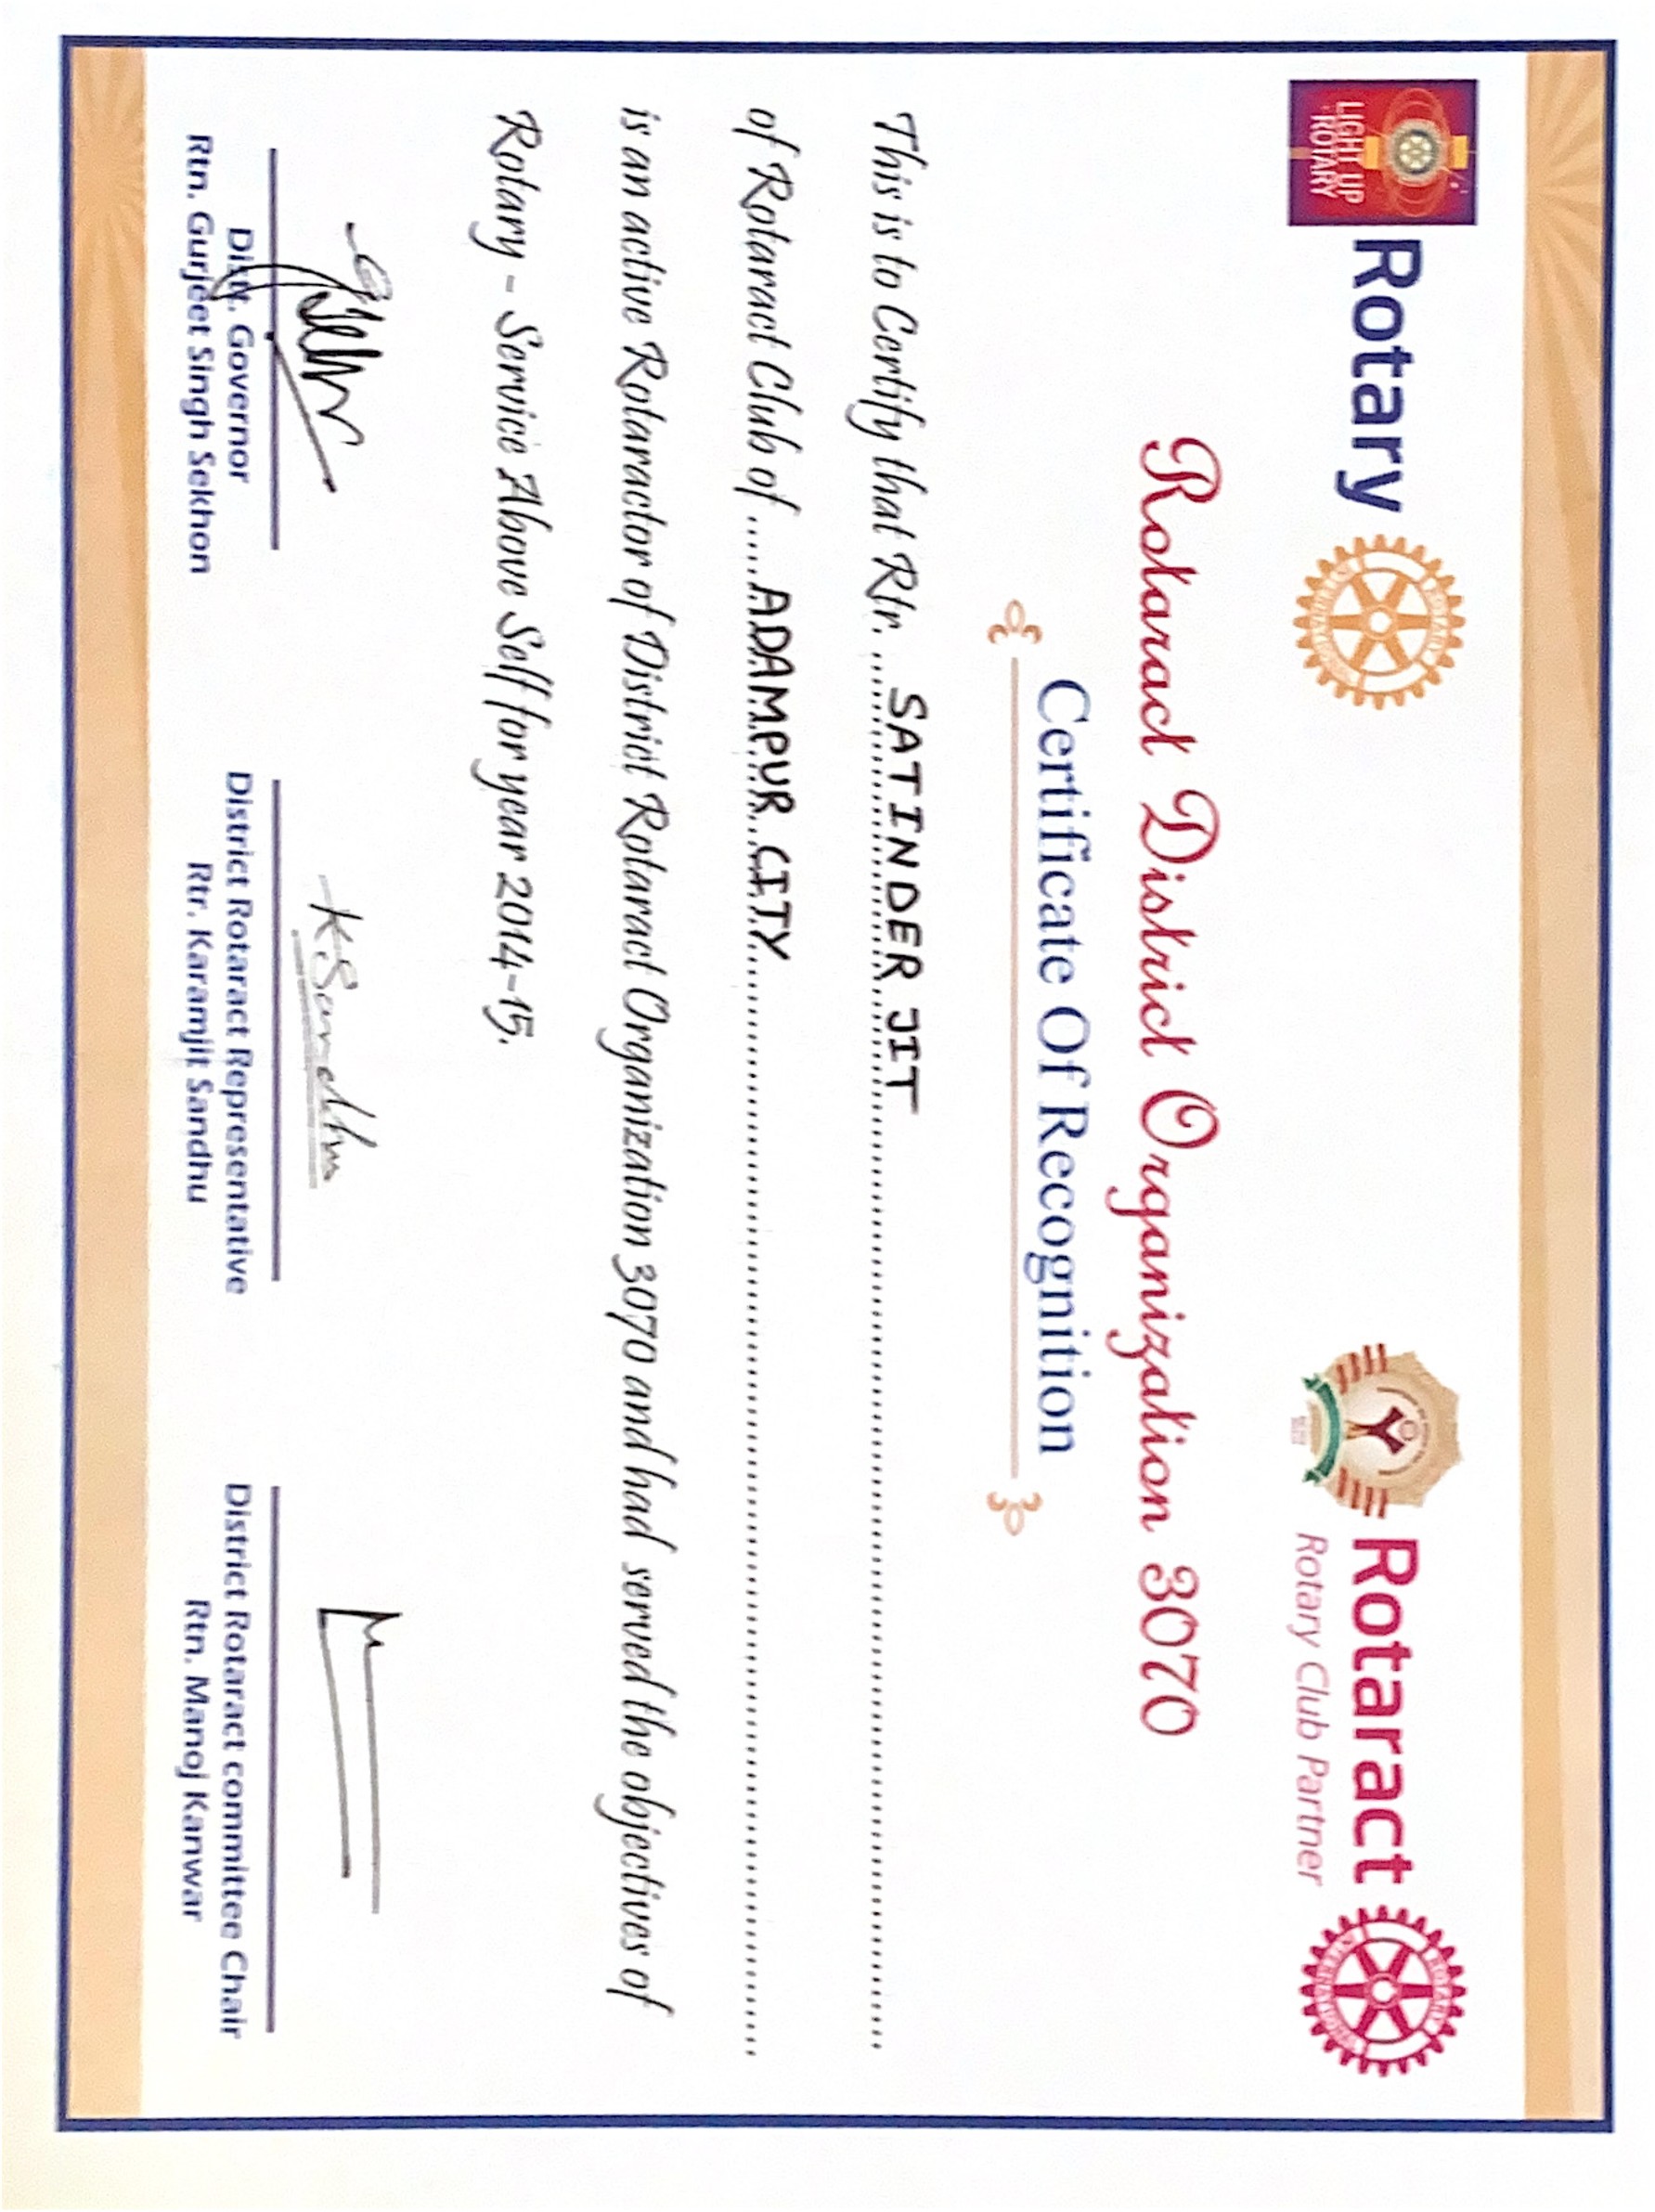 LIGHT UP
ROTARY
Rotary
ROTARY
INTERNATIONAL
Rotaract
Rotary Club Partner
ROTARY
INTERNATIONAL
Rotaract District Organization 3070
Certificate Of Recognition
This is to Certify that Rtr. SATINDER JIT
of Rotaract Club of ADAMPUR CITY
is an active Rotaractor of District Rotaract Organization 3070 and had served the objectives of
Rotary - Service Above Self for year 2014-15.
KSandhu
Distt. Governor
Rtn. Gurjeet Singh Sekhon
District Rotaract Representative
Rtr. Karamjit Sandhu
District Rotaract committee Chair
Rtn. Manoj Kanwar